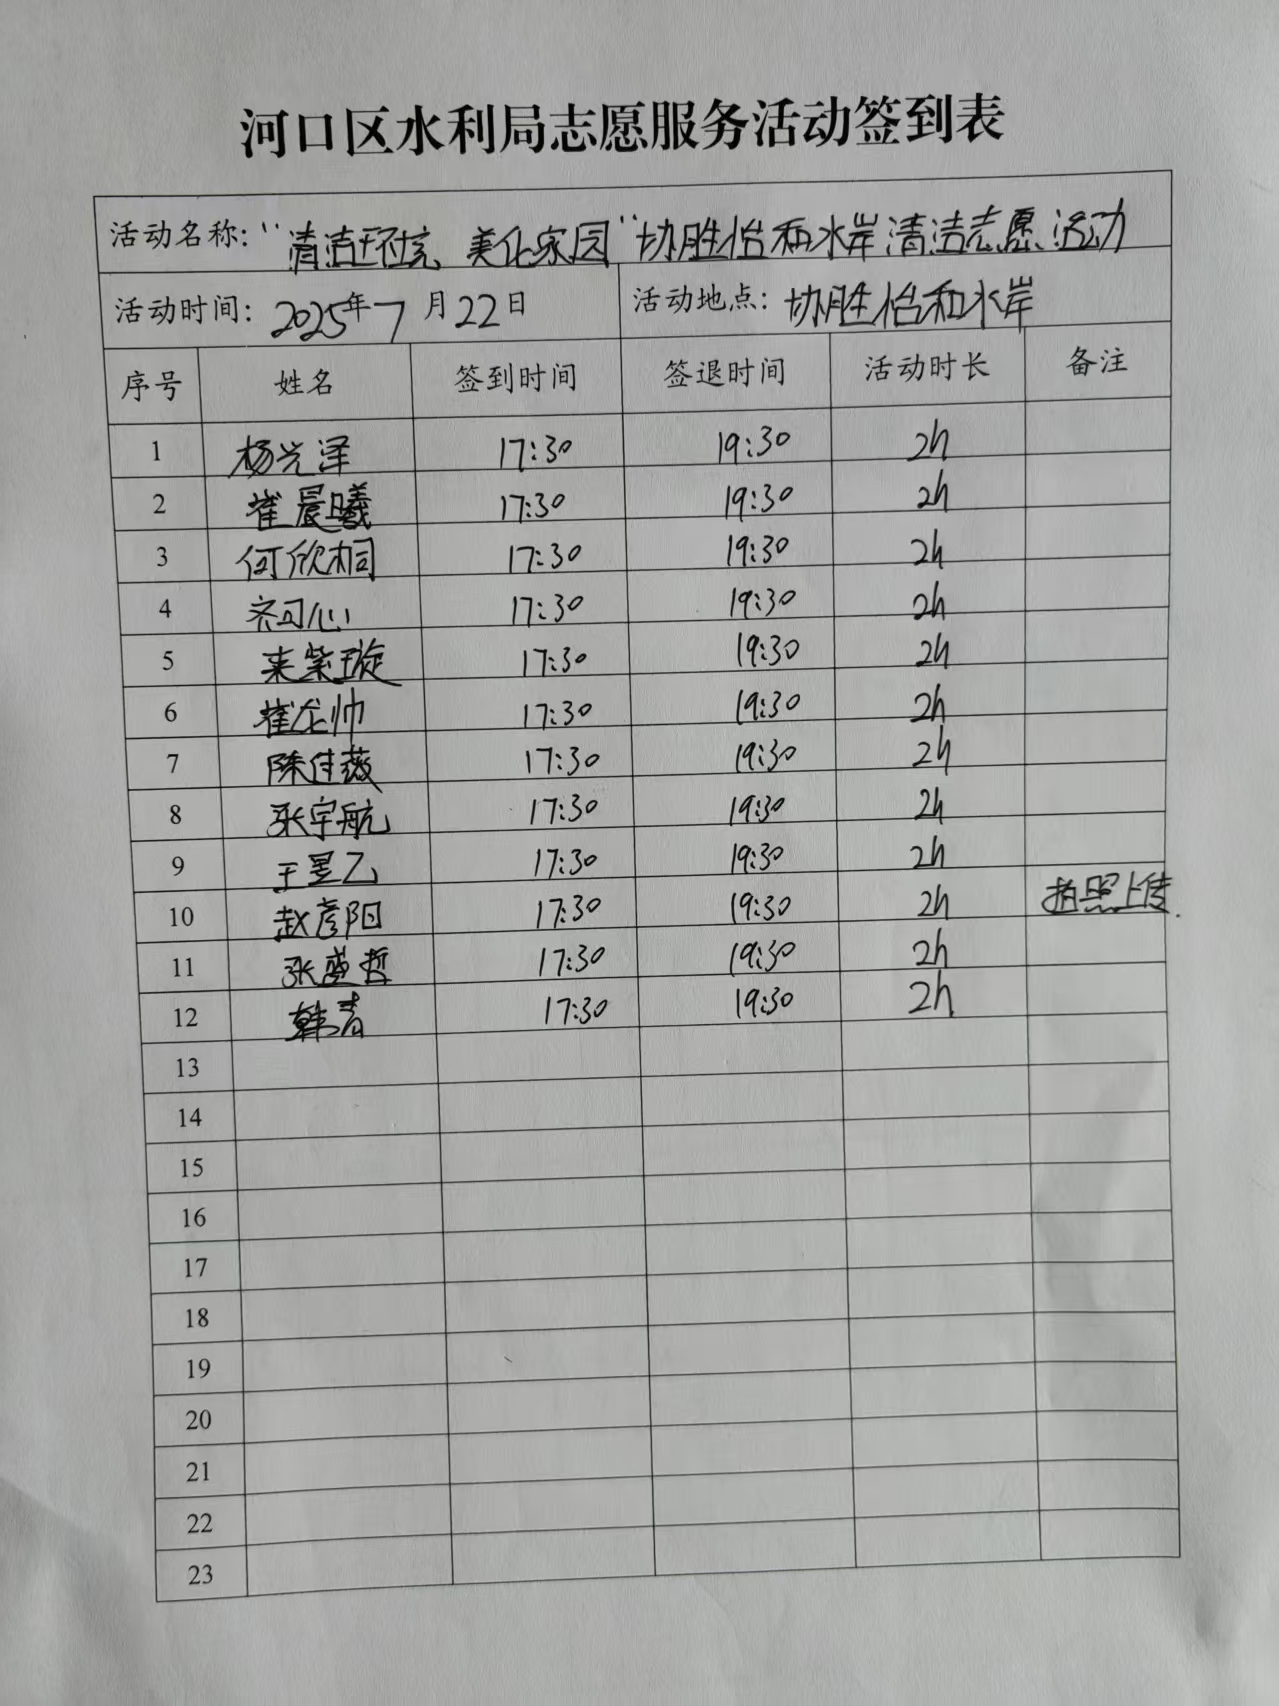 河口区水利局志愿服务活动签到表
活动名称："清洁环境、美化家园"协胜怡和水岸清洁志愿活动
活动时间：2025年7月22日 活动地点：协胜怡和水岸
序号 姓名 签到时间 签退时间 活动时长 备注
1 杨兴泽 17:30 19:30 2h
2 崔晨曦 17:30 19:30 2h
3 何欣桐 17:30 19:30 2h
4 齐可心 17:30 19:30 2h
5 来紫璇 17:30 19:30 2h
6 崔龙帅 17:30 19:30 2h
7 陈佳薇 17:30 19:30 2h
8 张宇航 17:30 19:30 2h
9 王昱乙 17:30 19:30 2h
10 赵彦阳 17:30 19:30 2h 拍照上传.
11 张盛哲 17:30 19:30 2h
12 韩青 17:30 19:30 2h
13
14
15
16
17
18
19
20
21
22
23